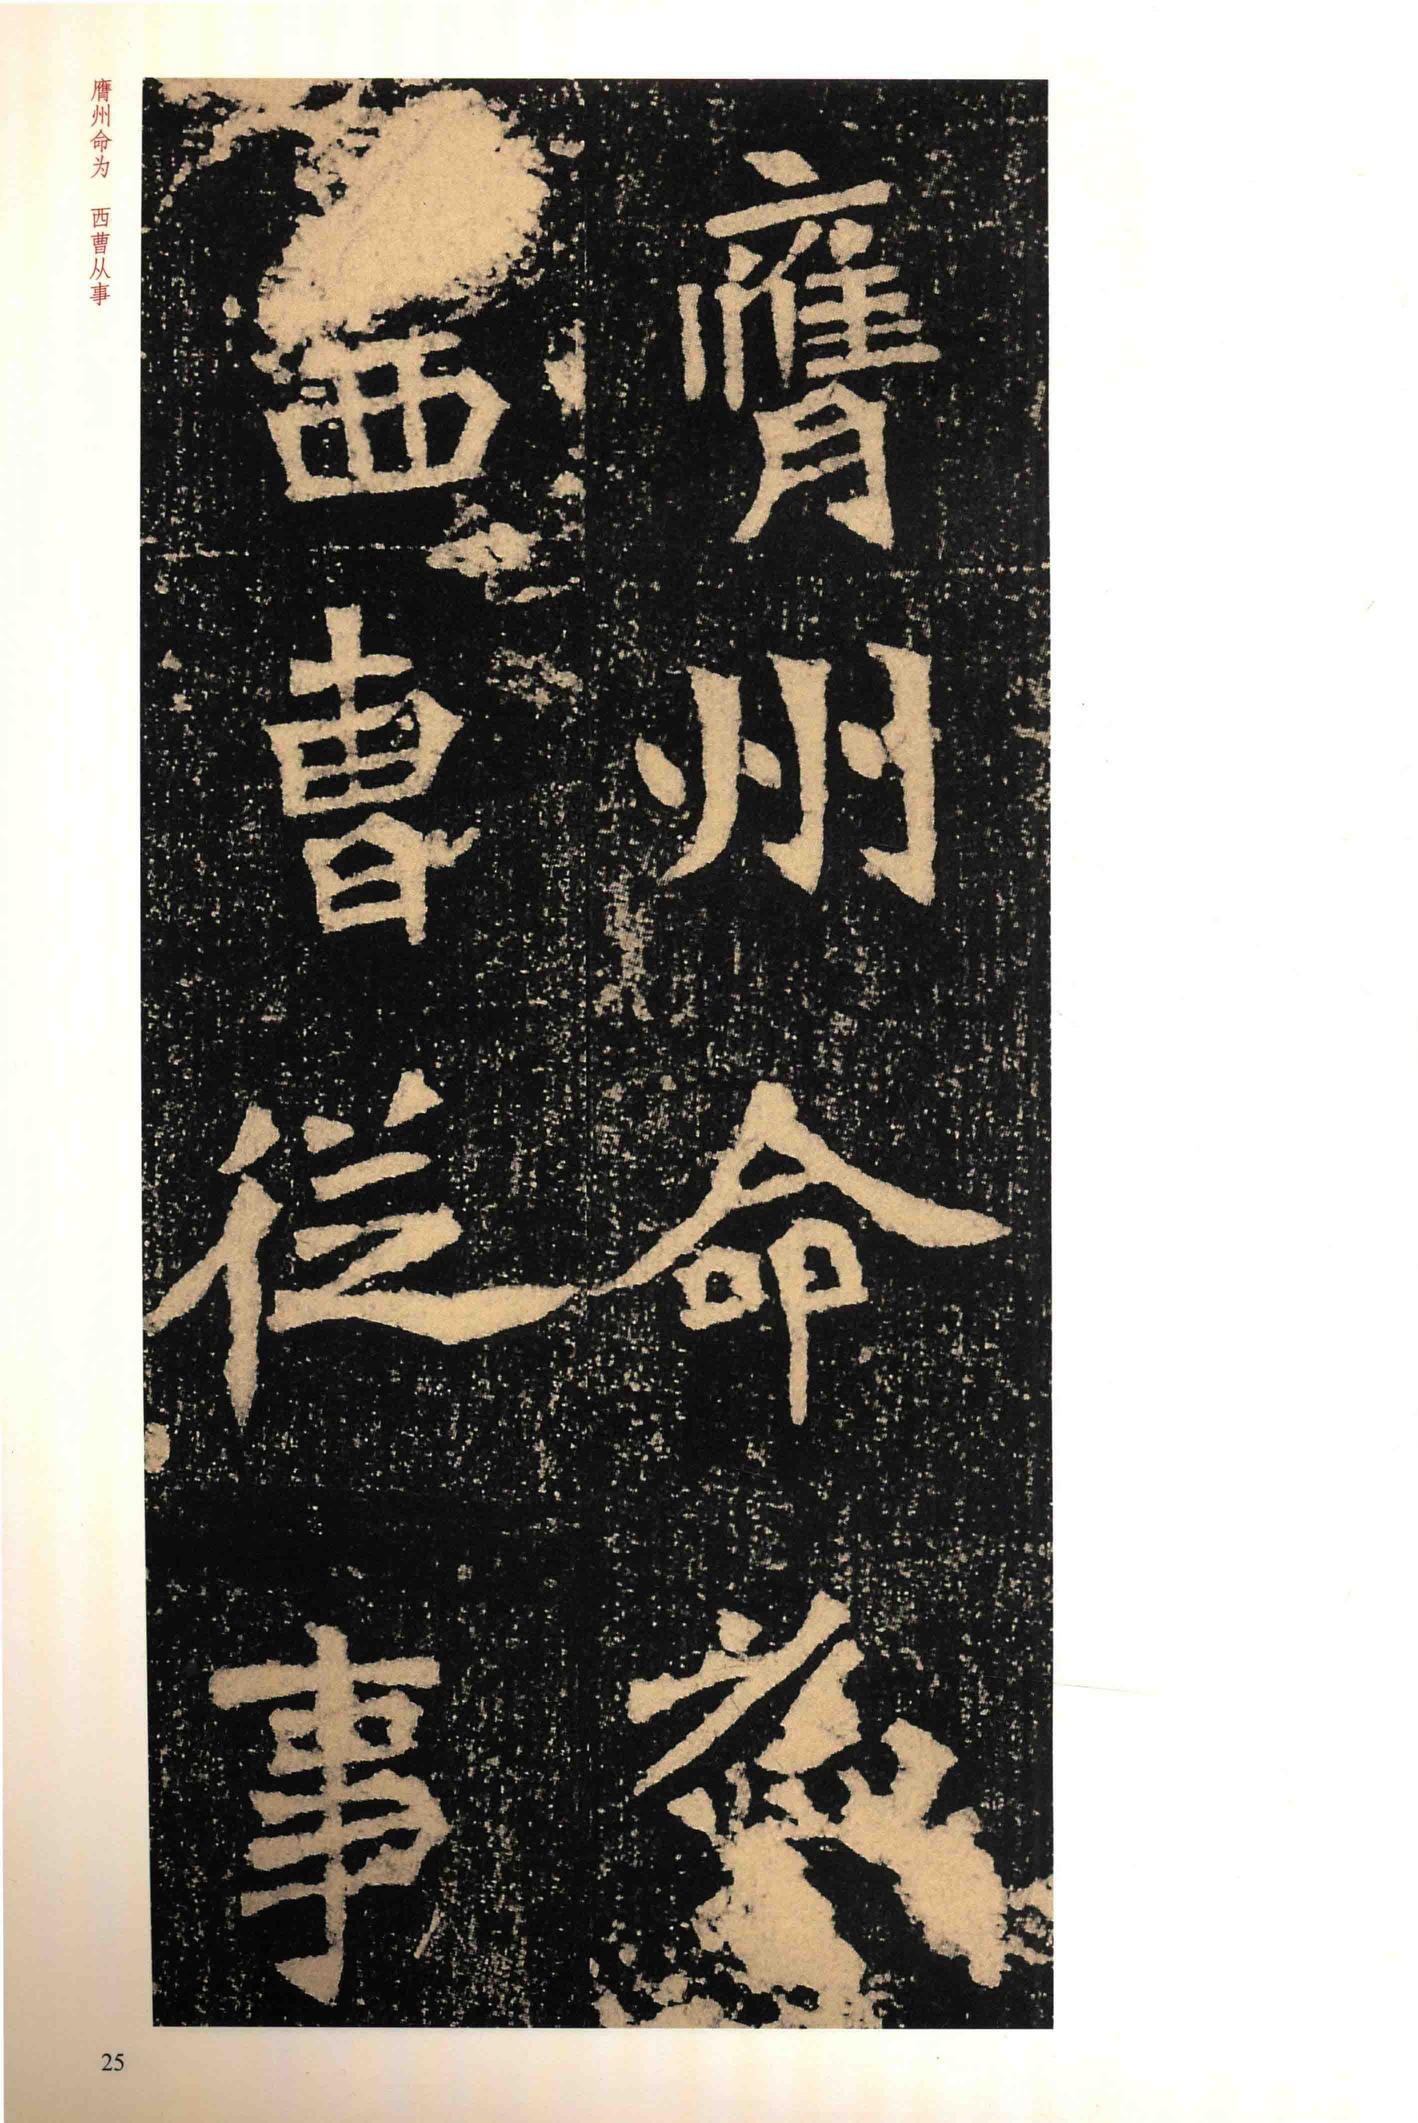 膺州命為
西曹從事
膺州命为 西曹从事
25